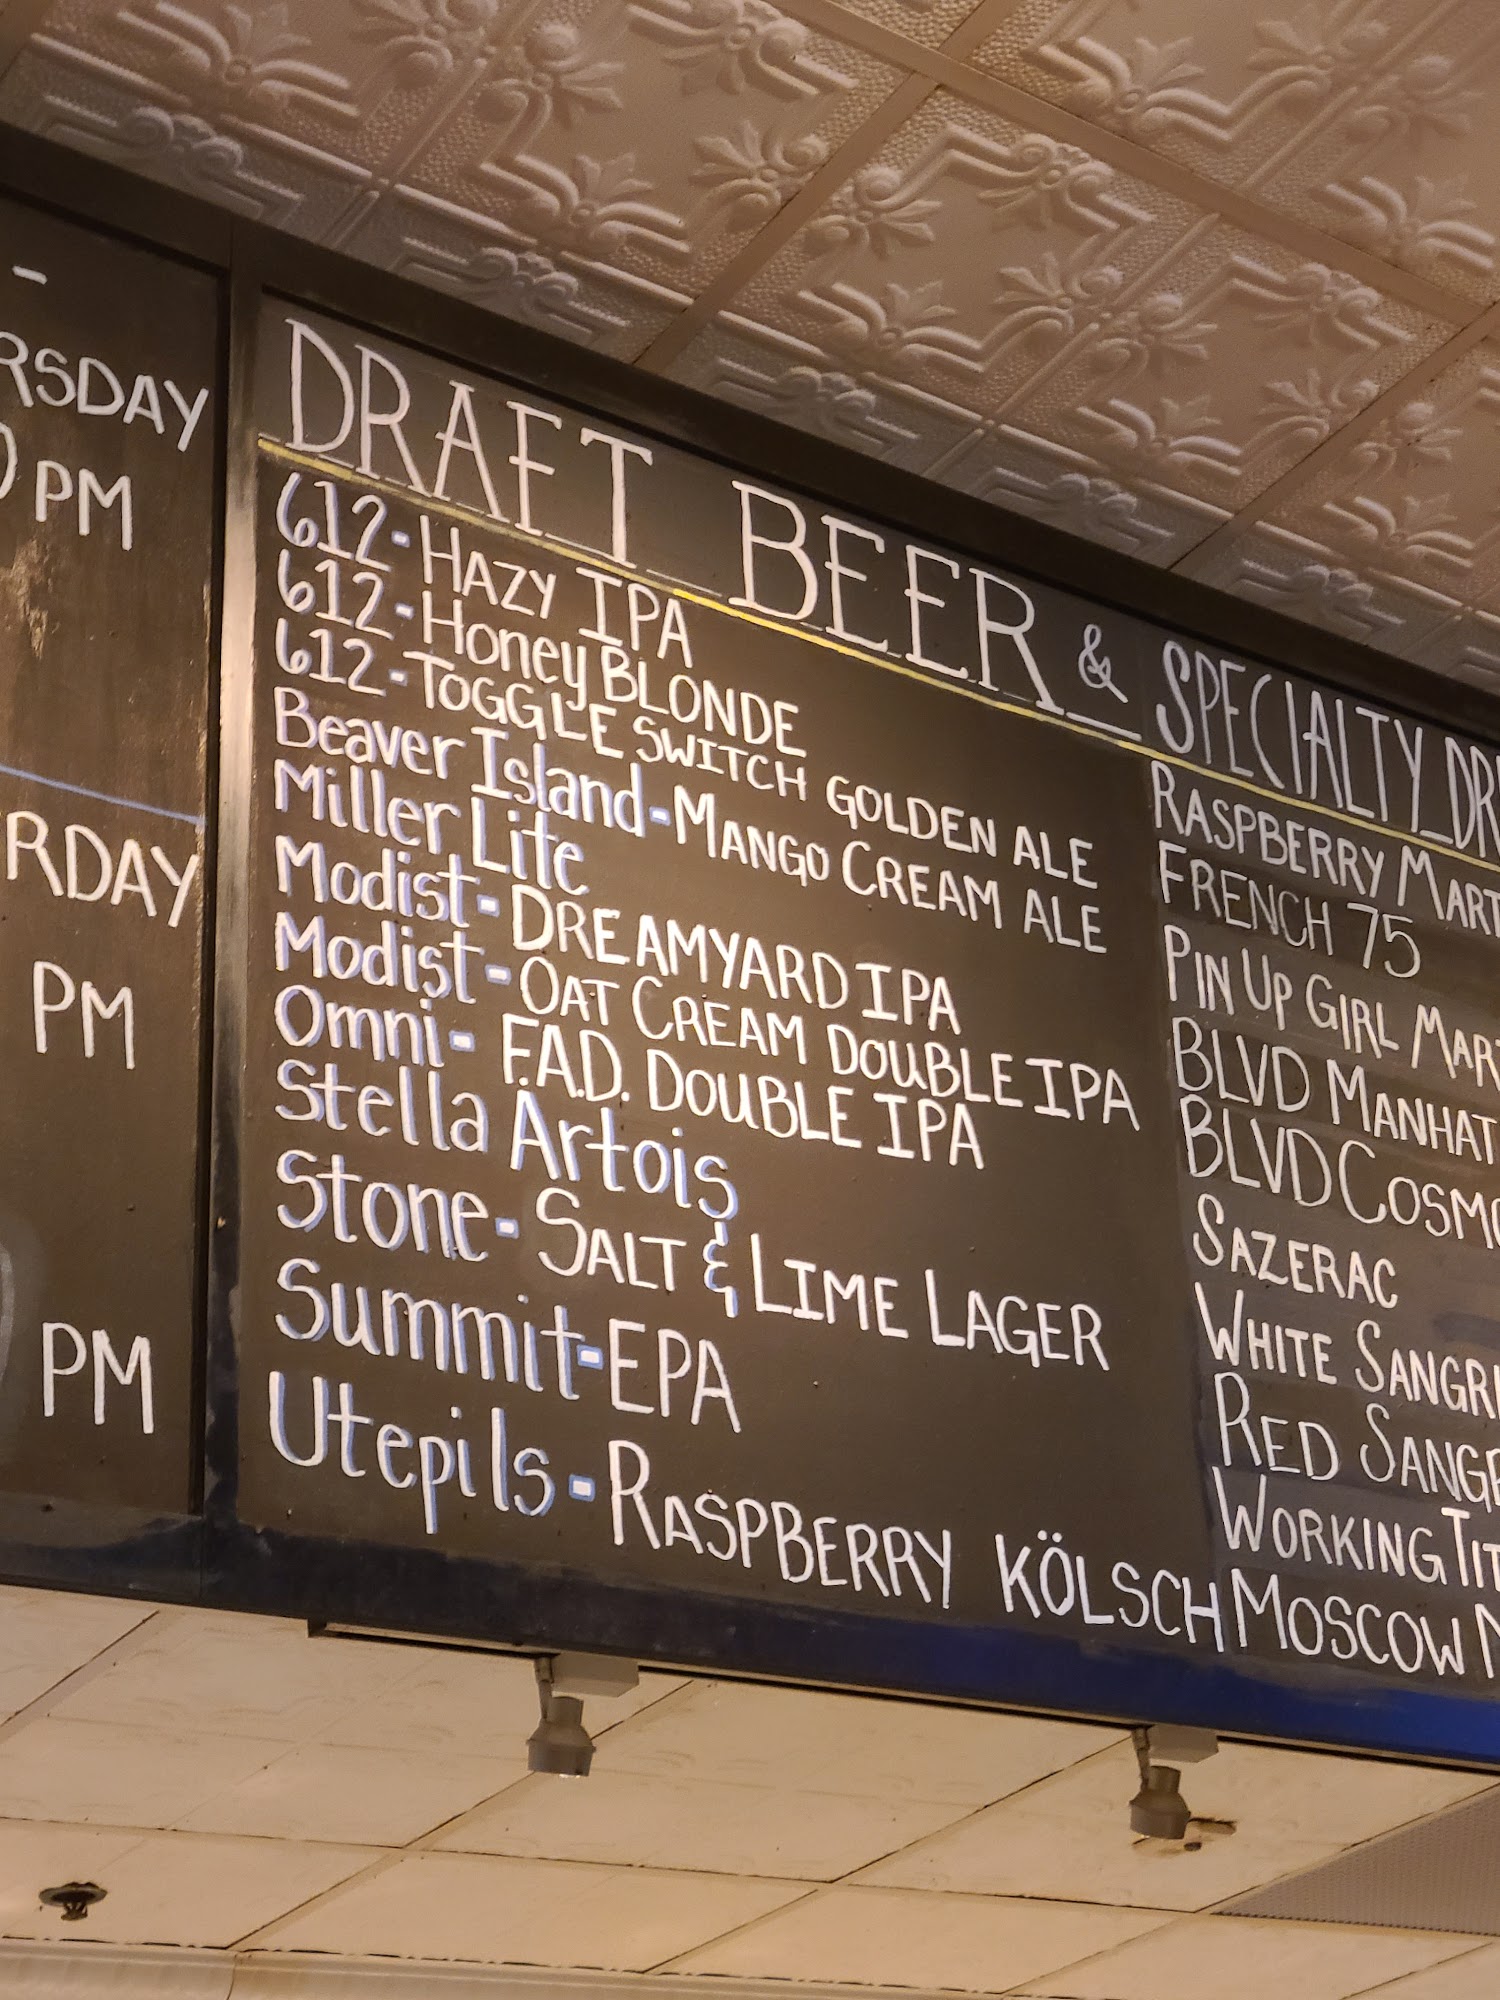 PM
PM
PM
DRAFT BEER & SPECIALTY
612-HAZY IPA
612-Honey BLONDE
612-TOGGLE SWITCH GOLDEN ALE
Beaver Island-MANGO CREAM ALE
Miller Lite
Modist-DREAMYARD IPA
Modist-OAT CREAM DOUBLE IPA
Omni- F.A.D. DOUBLE IPA
Stella Artois
Stone-SALT & LIME LAGER
Summit-EPA
Utepils-RASPBERRY KÖLSCH
RASPBERRY
FRENCH 75
PIN UP GIRL
BLVD
BLVD
SAZERAC
WHITE
RED
WORKING
MOSCOW